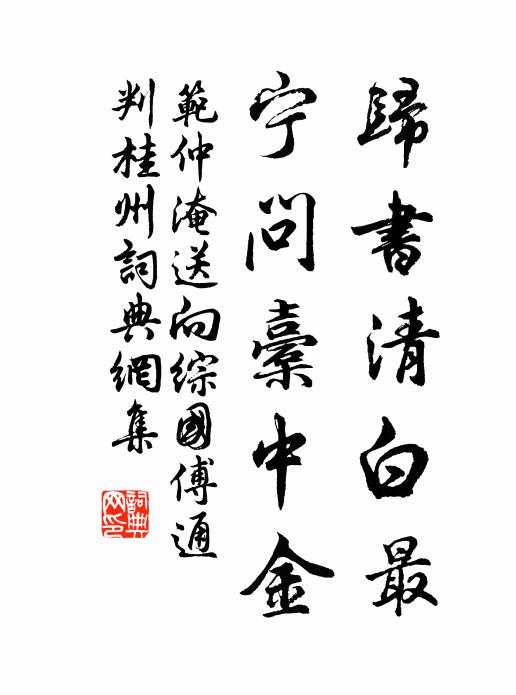 歸書清白最
宁問橐中金
範仲淹送向綜國傅通
判桂州詞典網集
詞典
网印